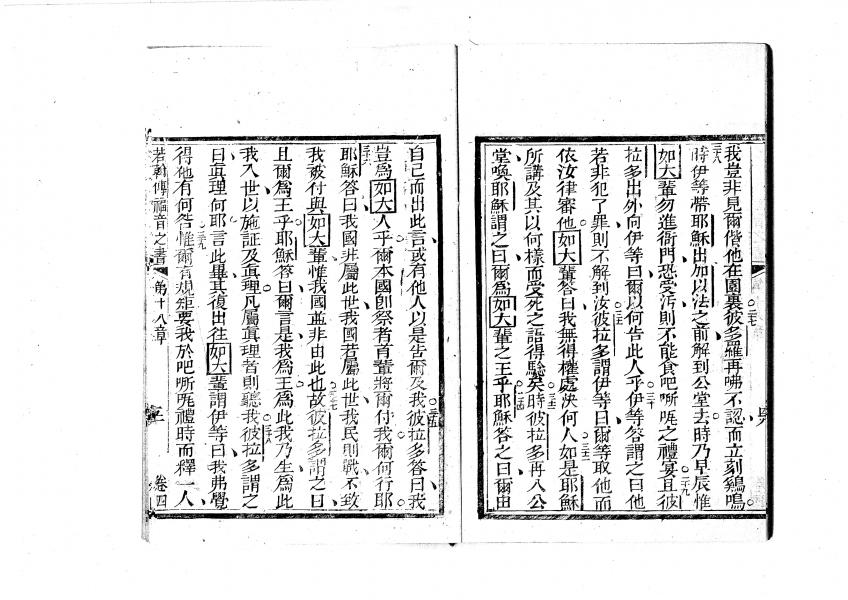 我豈非見爾偕他在園裏彼多羅再咈不認而立刻鷄鳴
時伊等帶耶穌出加以法之前解到公堂去時乃早辰惟
如大輩勿進衙門恐受汚則不能食吧𠵽㖿之禮宴且彼
拉多出外向伊等曰爾以何告此人乎伊等答謂之曰他
若非犯了罪則不解到汝彼拉多謂伊等曰爾等取他而
依汝律審他如大輩答曰我無得權處决何人如是耶穌
所講及其以何樣而受死之語得騐矣時彼拉多再入公
堂喚耶穌謂之曰爾爲如大輩之王乎耶穌答之曰爾由
自己而出此言或有他人以是告爾及我彼拉多答曰我
豈爲如大人乎爾本國與祭者首輩將爾付我爾何行耶
耶穌答曰我國非屬此世我國若屬此世我民則戰不致
我被付與如大輩惟我國並非由此也故彼拉多謂之曰
且爾爲王乎耶穌答曰爾言是我爲王爲此我乃生爲此
我入世以施証及眞理凡屬眞理者則聽我彼拉多謂之
曰眞理何耶言此畢其復出往如大輩謂伊等曰我弗覺
得他有何咎惟爾有規矩要我於吧𠵽㖿禮時而釋一人
若翰傳福音之書 第十八章 卷四